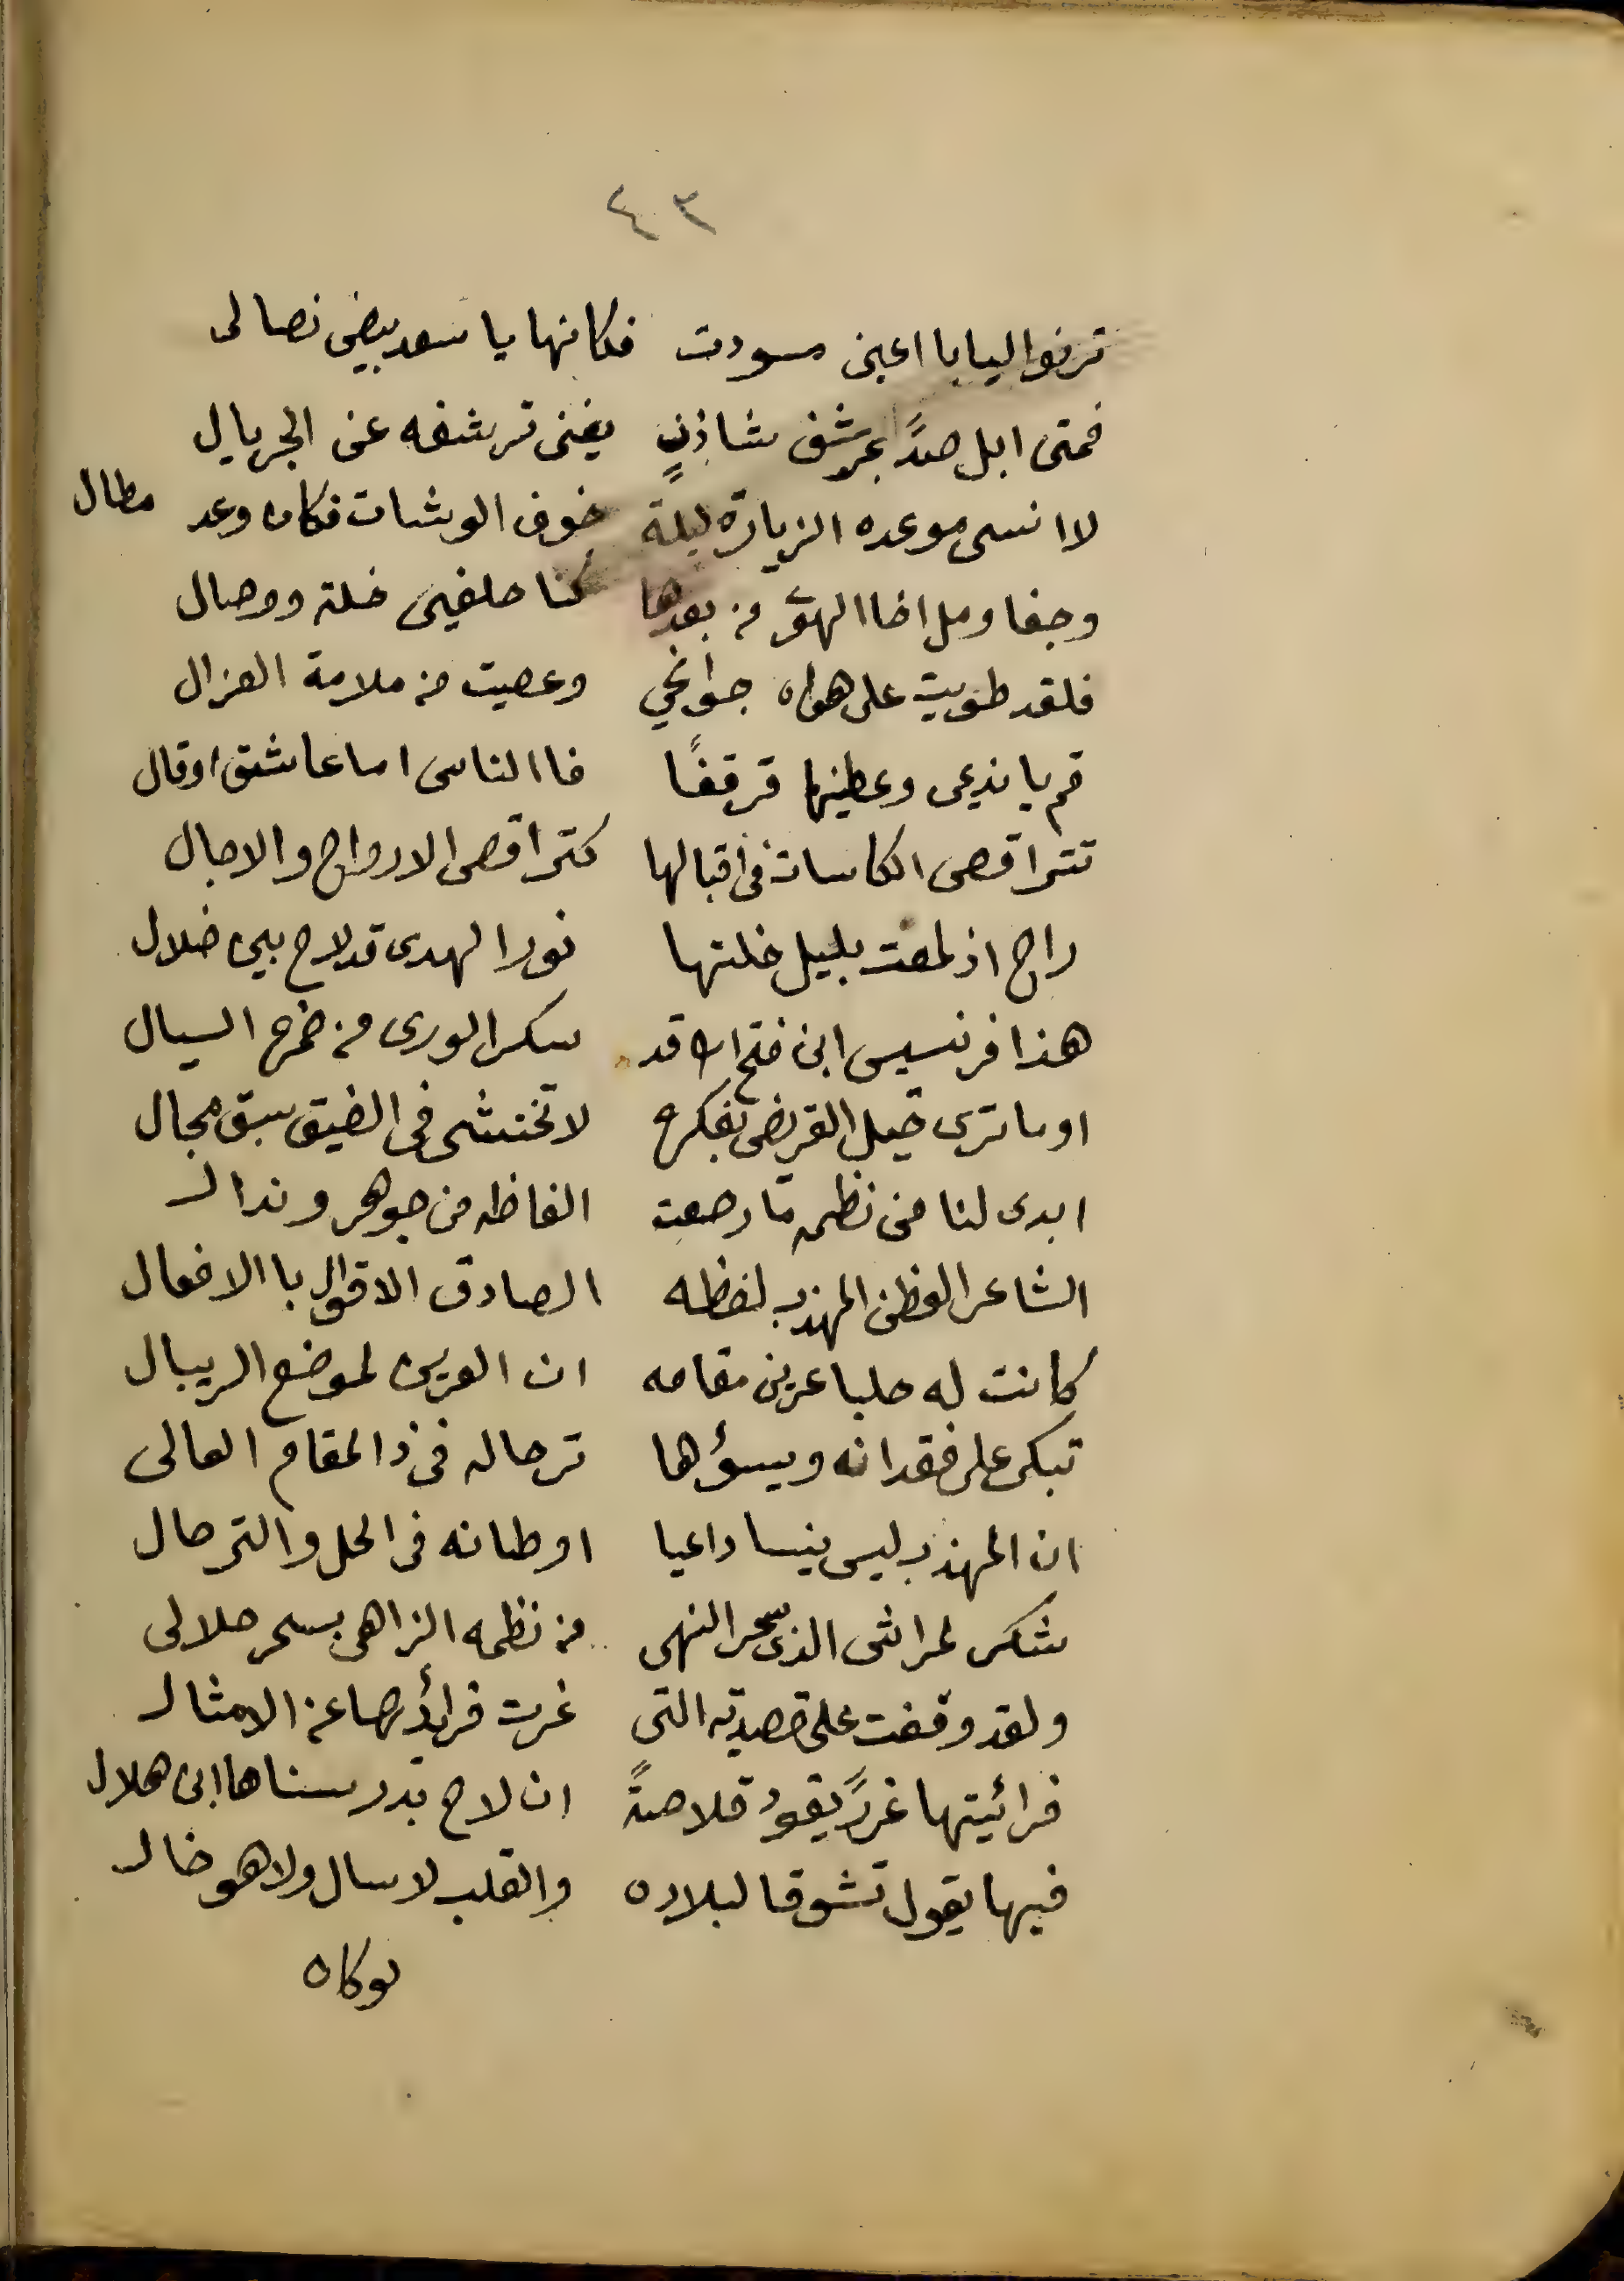 ٤٣
ترنوا اليا باا عين مسودت فكانها يا سعد بيض نصالى
فمتى ابل صدًا بمرشف شاذنٍ يغنى ترشفه عن الجريال
لا انسى موعده الزيارة ليلة خوف الوشات فكان وعد مطال
وجفا ومل اخا الهوى من بعدها كنا حلفين خلة ووصال
فلقد طويت على هواه جوانحي وعصيت من ملامة العزال
قم يا نديمى وعطينها قرقفًا فاالناس اما عاشق او قال
تتراقص الكاسات فى اقبالها كتراقص الارواح والاجال
راح اذ لمعت بليل خلتها نور الهدى قد لاح بين ضلال
هذا فرنسيس ابن فتح الله قد سكر الورى من خمره السيال
او ما ترى خيل القريض بفكره لا تختشى فى الضيق سبق مجال
ابدى لنا من نظمه ما رصعت الفاظه من جوهر وندال
الشاعر الفطن المهذب لفظه الصادق الاقوال باالافعال
كانت له حلبا عرين مقامه ان العرين لموضع الريبال
تبكى على فقدانه ويسؤها ترحاله فى ذا لمقام العالى
ان المهذب ليس ينسا داعيا اوطانه فى الحل والترحال
شكر لمراشى الذى سحر النهى من نظمه الزاهى بسحر حلالى
ولقد وقفت على قصيدته التى غرت فرائدها عن الامثال
فرائيتها غررً يقود قلاصةً ان لاح بدر سناها ابن هلال
فيها يقول تشوقا لبلاده والقلب لا سال ولا هو خال
لو كان